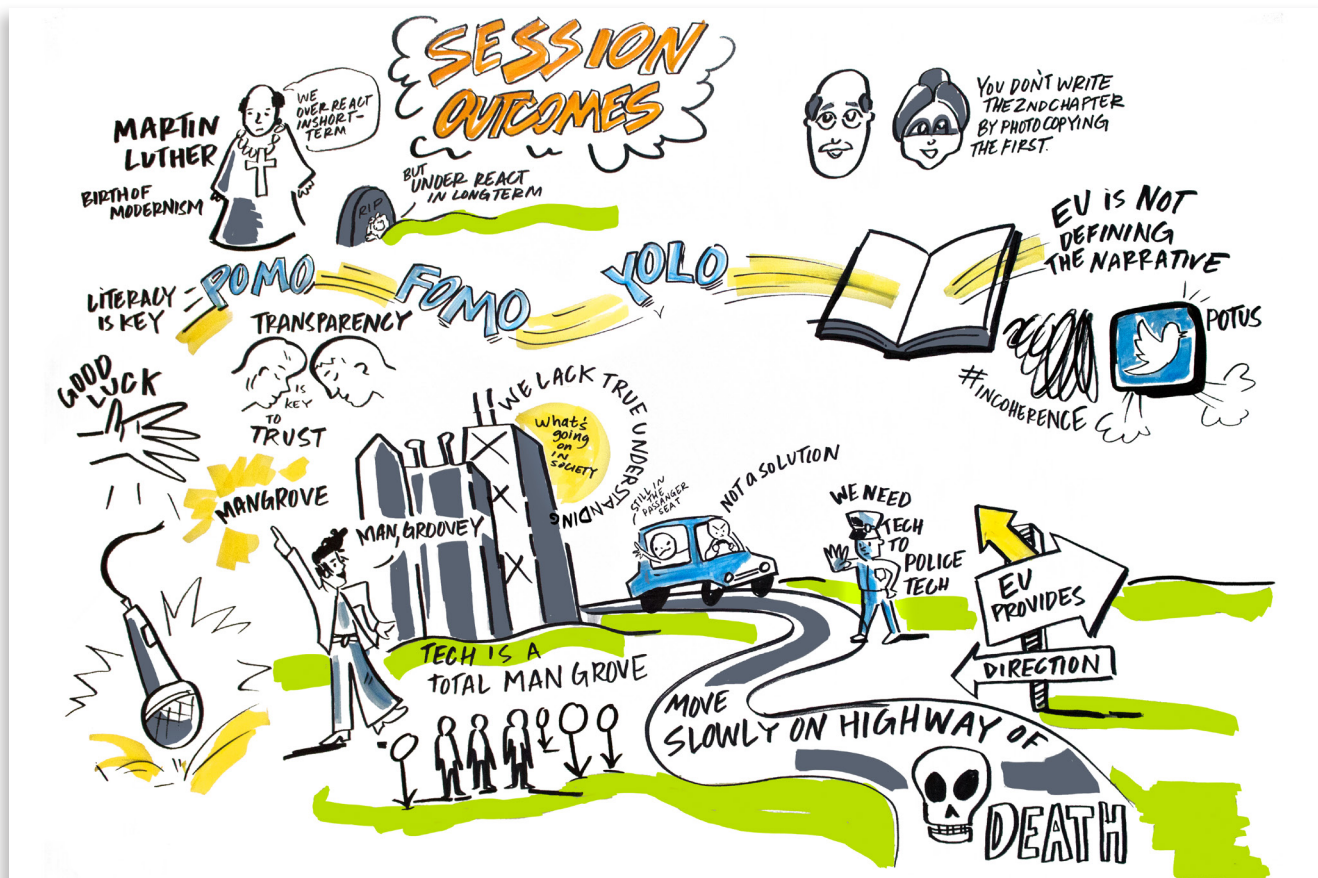 SESSION
OUTCOMES
MARTIN
LUTHER
BIRTH OF
MODERNISM
WE
OVER REACT
IN SHORT-
TERM
RIP
BUT
UNDER REACT
IN LONGTERM
YOU DON'T WRITE
THE 2ND CHAPTER
BY PHOTOCOPYING
THE FIRST.
LITERACY
IS KEY
POMO
FOMO
YOLO
EU IS NOT
DEFINING
THE NARRATIVE
POTUS
#INCOHERENCE
TRANSPARENCY
IS
KEY
TO
TRUST
GOOD
LUCK
MANGROVE
MAN, GROOVEY
WE LACK TRUE UNDERSTANDING
What's
going
on
IN
SOCIETY
STILL IN
THE
PASSANGER
SEAT
NOT A SOLUTION
WE NEED
TECH
TO
POLICE
TECH
EU
PROVIDES
DIRECTION
TECH IS A
TOTAL MAN GROVE
MOVE
SLOWLY ON HIGHWAY OF
DEATH